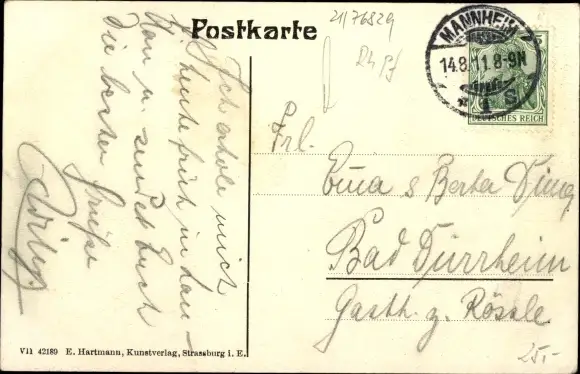 Postkarte
21/76829
MANNHEIM 2
14.8.11.8-9N
1 S
DEUTSCHES REICH
Ich erhole mich
heute früh in
u. sendet Euch
die besten
Grüße
Frl.
Ema & Berta
Bad Dürrheim
Gasth. z. Rössle
25.-
VII 42189 E. Hartmann, Kunstverlag, Strassburg i. E.